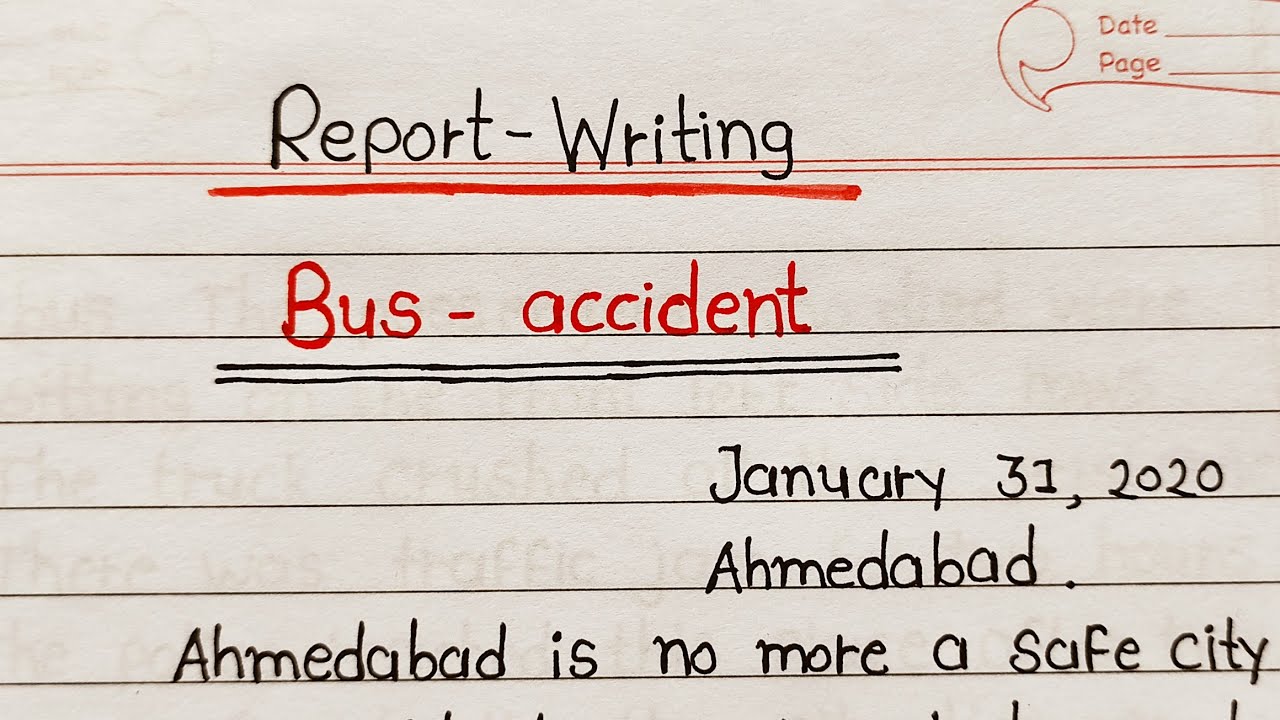 Date
Page
Report-Writing
Bus - accident
January 31, 2020
Ahmedabad.
Ahmedabad is no more a safe city